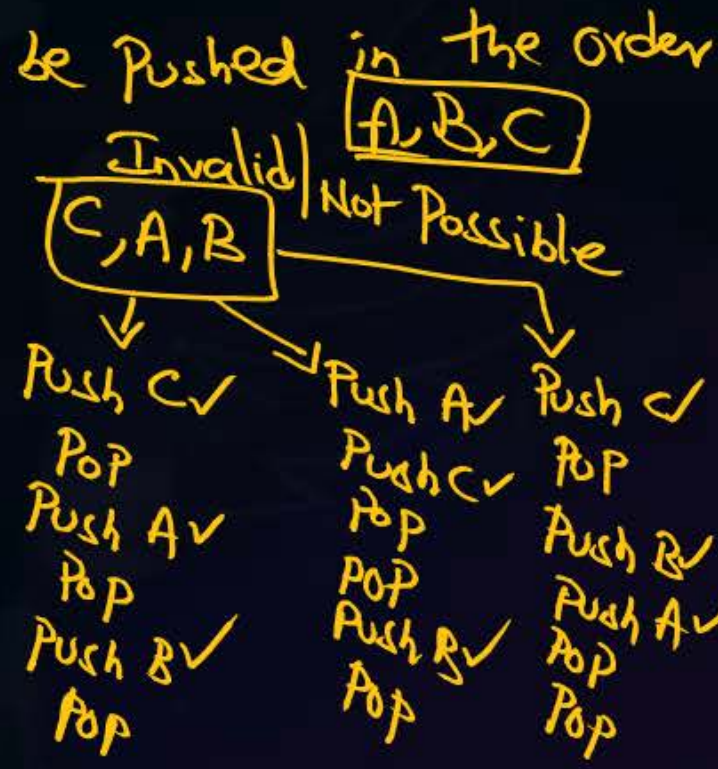 be Pushed in the order
A, B, C
Invalid | Not Possible
C, A, B
Push C ✓
Pop
Push A ✓
Pop
Push B ✓
Pop
Push A ✓
Push C ✓
Pop
Pop
Push B ✓
Pop
Push C ✓
Pop
Push B ✓
Push A ✓
Pop
Pop